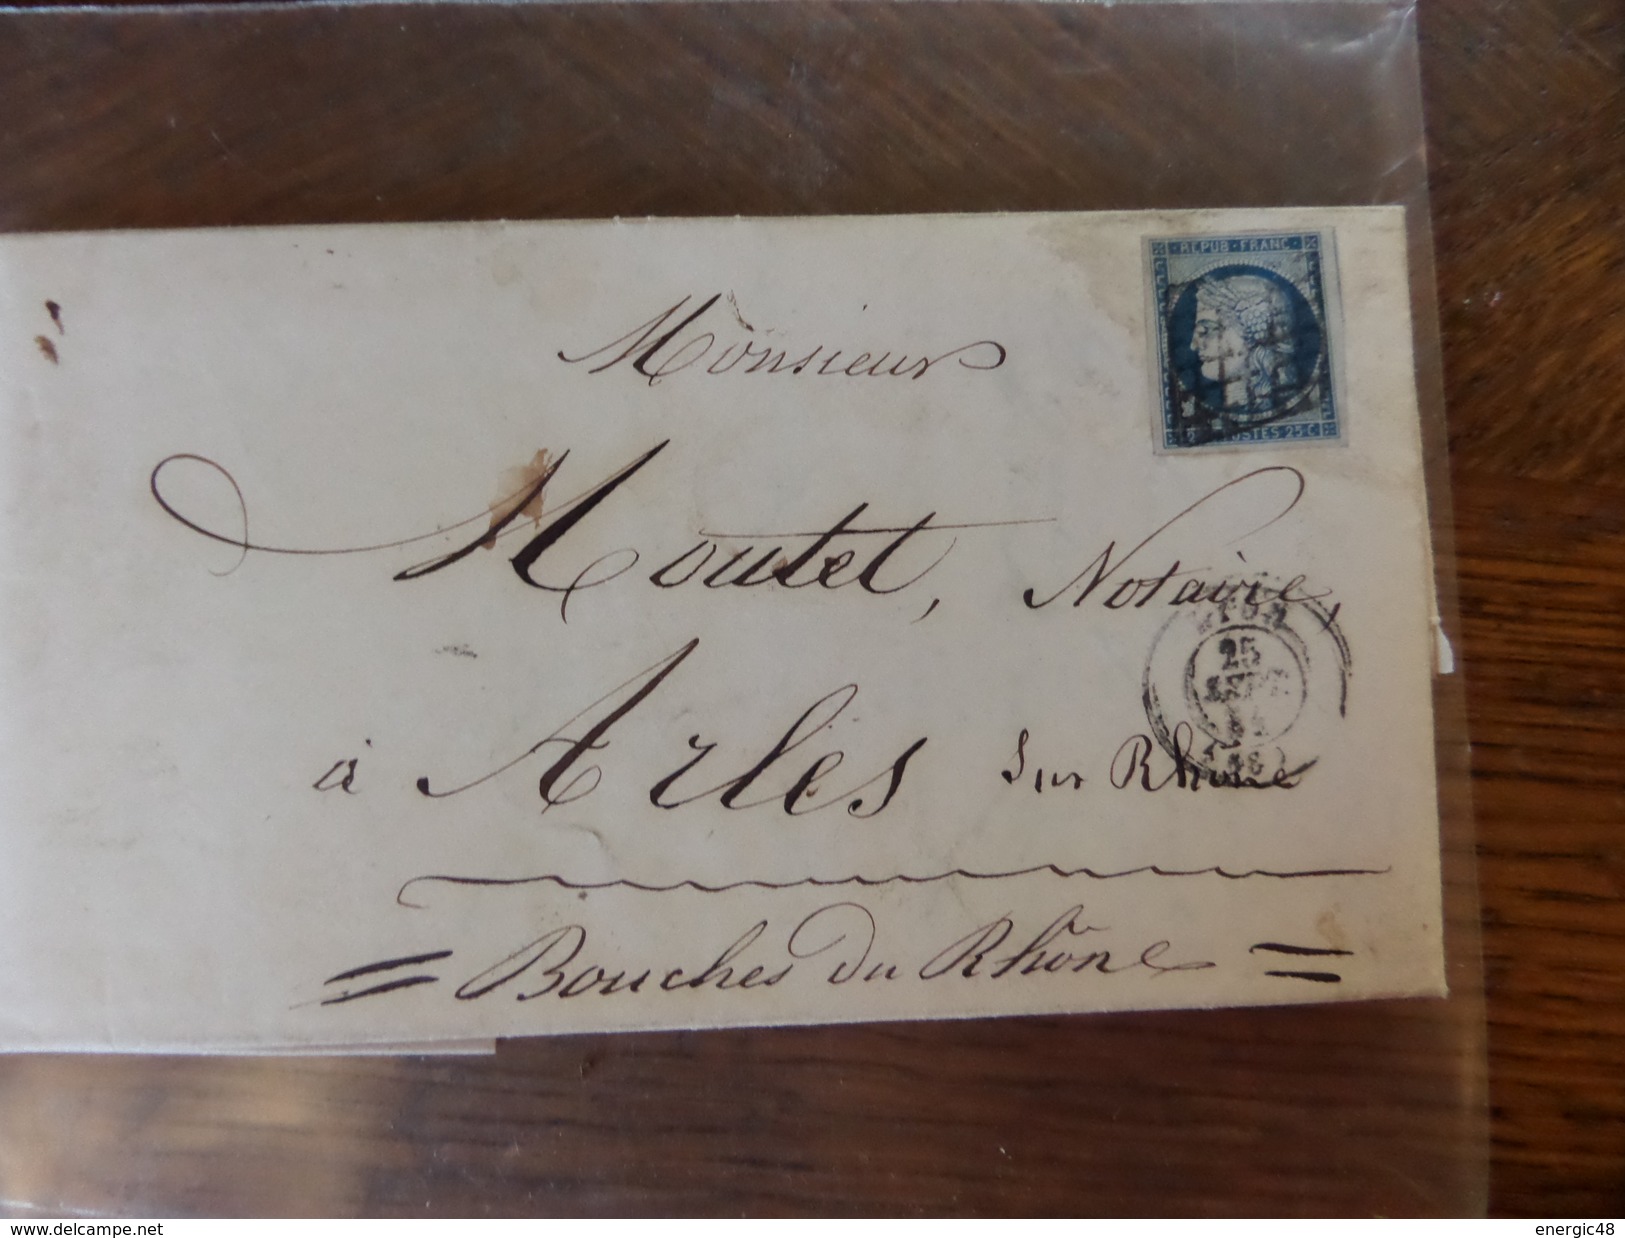 REPUB · FRANC
POSTES · 25 · C
Monsieur
Moutet, Notaire,
LYON
25
à Arles sur Rhône
Bouches du Rhône
www.delcampe.net
energic48